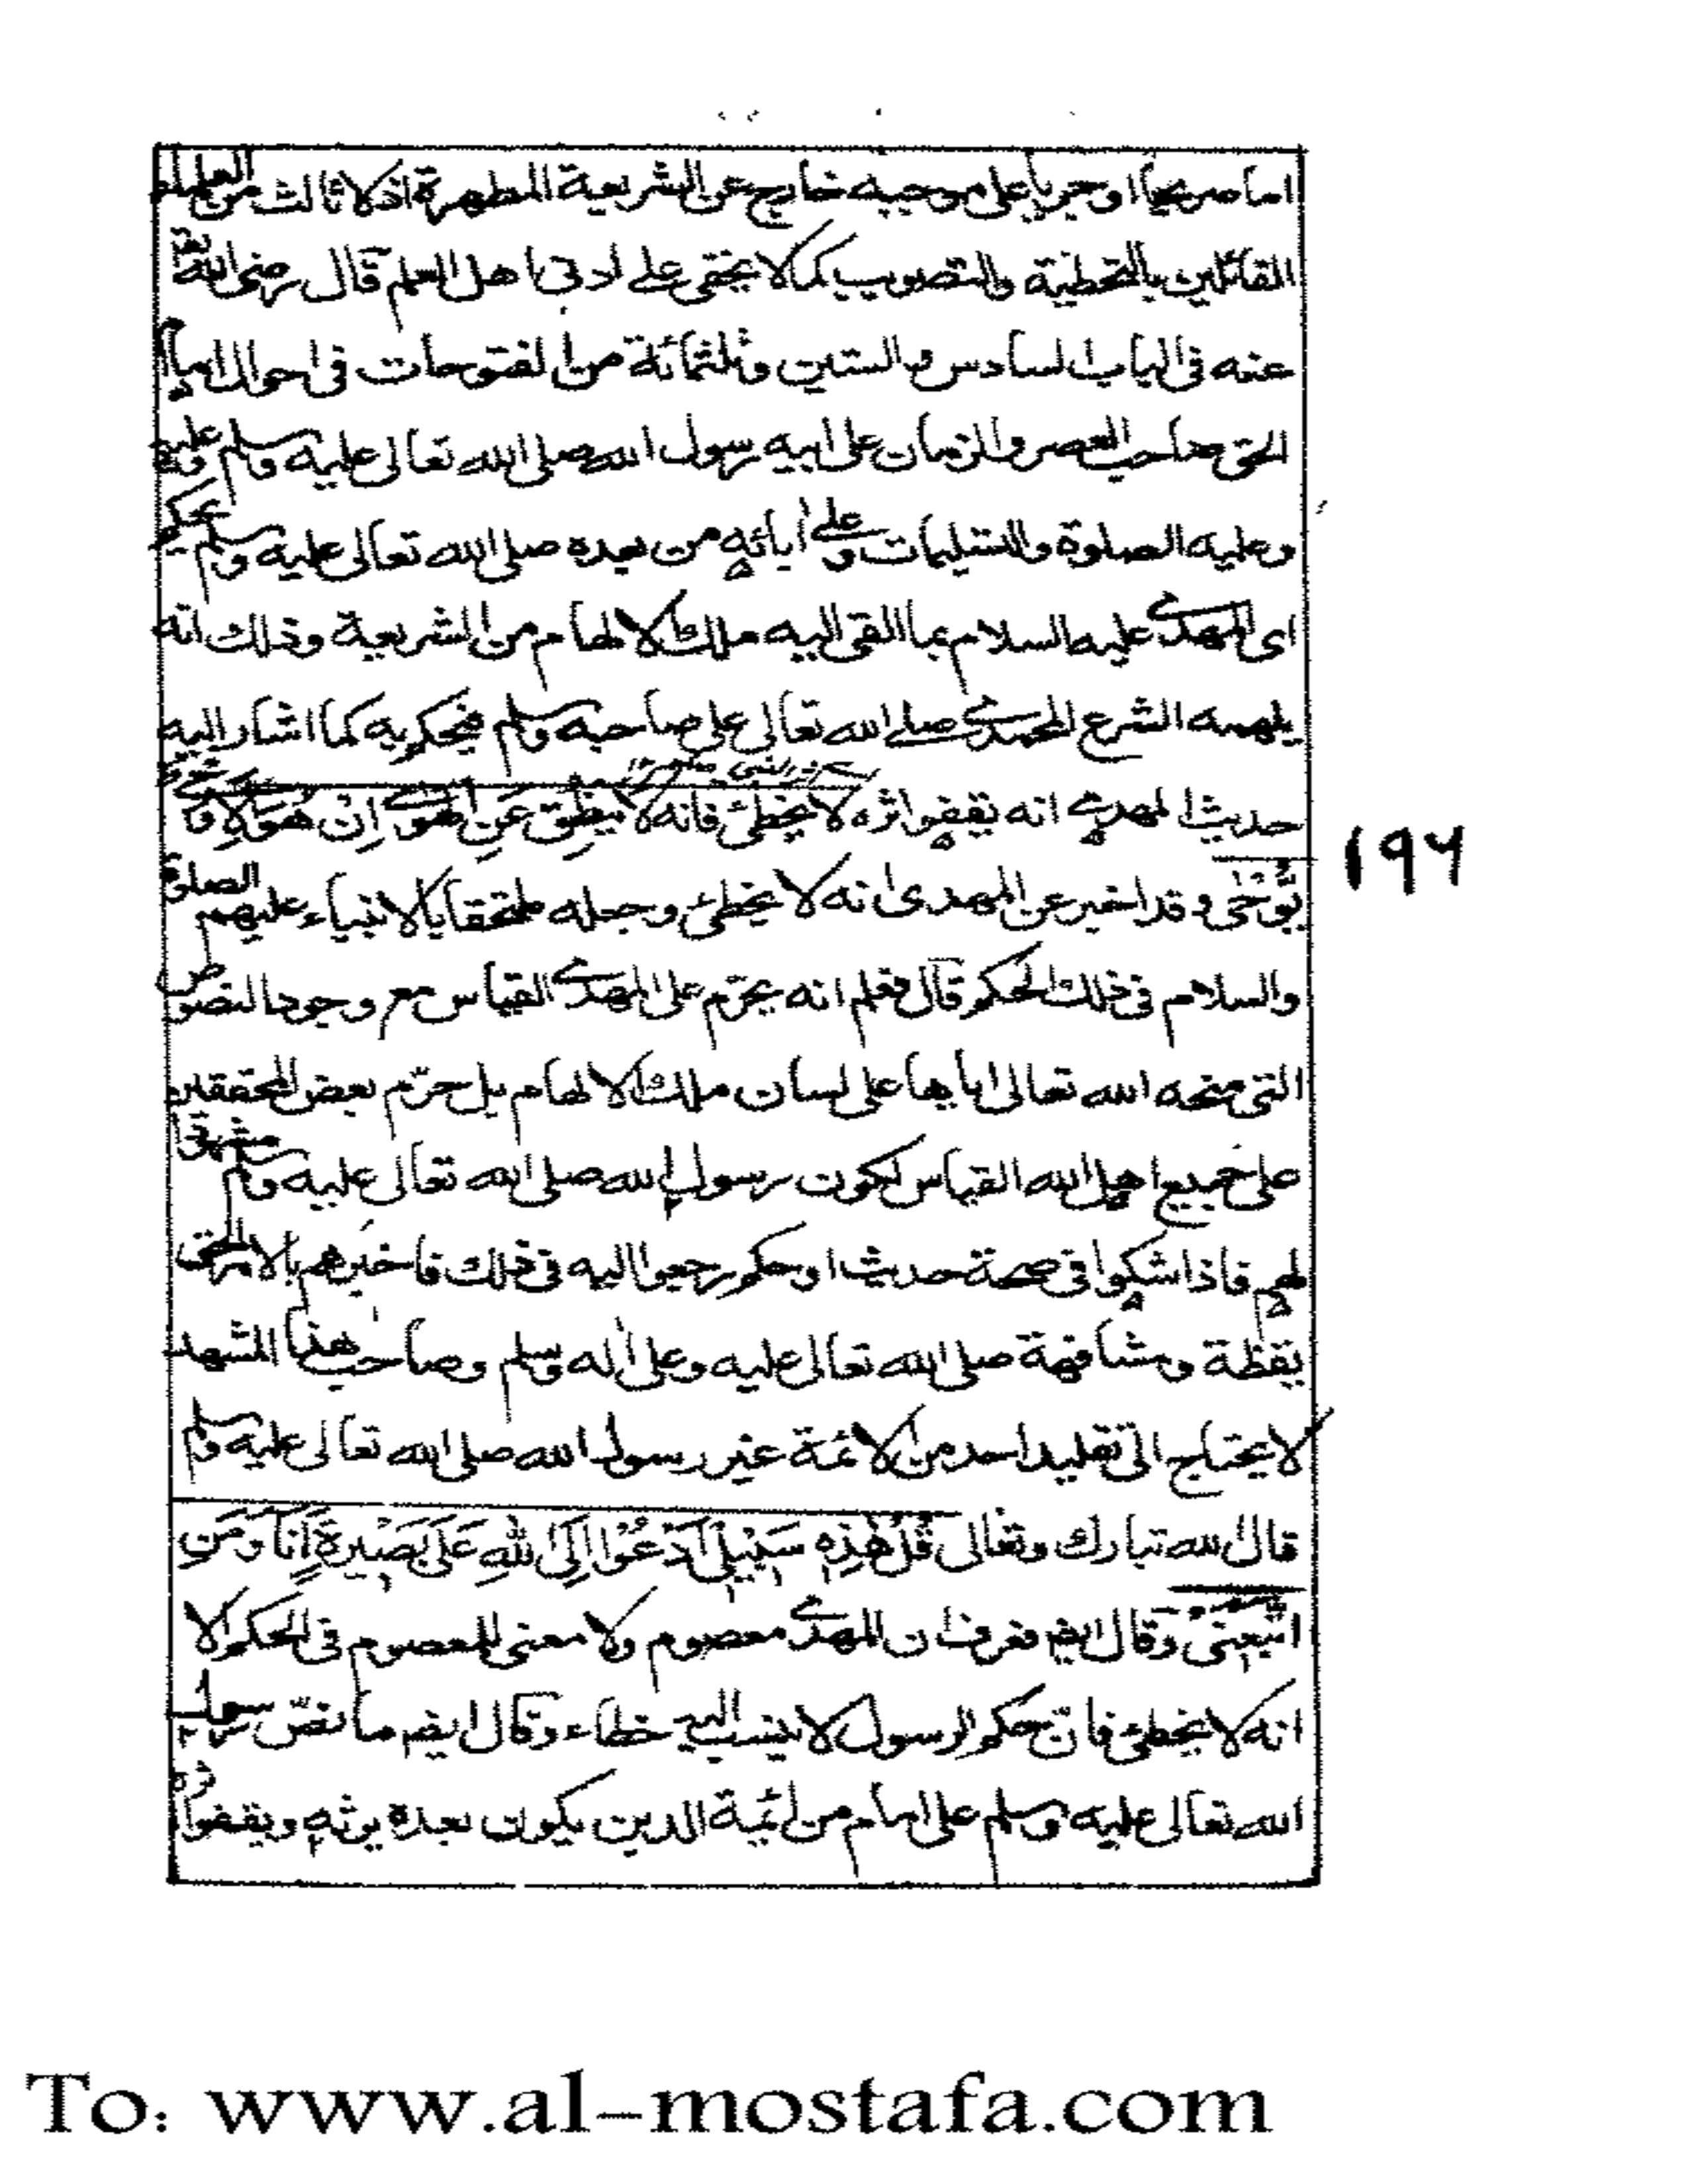 اما صريحا او جريا على موجبه خارج عن الشريعة المطهرة اذ لا ثالث من العلماء
القائلين بالتخطئة والتصويب كما لا يخفى على ادنى اهل العلم قال رضى الله تعالى
عنه فى الباب السادس والستين وثلثمائة من الفتوحات فى احوال امام
الحق صاحب العصر والزمان على ابيه رسول الله صلى الله تعالى عليه وسلم وعليه
وعليه الصلوة والتسليمات وعلى ابائه من بعده صلى الله تعالى عليه وسلم يحكم
اى المهدى عليه السلام بما القى اليه ملك الالهام من الشريعة وذلك انه
يلهمه الشرع المحمدى صلى الله تعالى على صاحبه وسلم فيحكم به كما اشار اليه
حديث المهدى انه يقفو اثره لا يخطئ فانه لا يَنْطِقُ عَنِ الْهَوٰى اِنْ هُوَ اِلَّا وَحْىٌ
يُّوْحٰى وقد اخبر عن المهدى انه لا يخطئ وجعله ملحقا بالانبياء عليهم الصلوة
والسلام فى ذلك الحكم قال فعلم انه يحرّم على المهدى القياس مع وجود النصوص
التى منحه الله تعالى اياها على لسان ملك الالهام بل حرّم بعض المحققين
على جميع اهل الله القياس لكون رسول الله صلى الله تعالى عليه وسلم مشهودا
لهم فاذا شكوا فى صحة حديث او حكم رجعوا اليه فى ذلك فاخبرهم بالامر الحق
يقظة ومشافهة صلى الله تعالى عليه وعلى اٰله وسلم وصاحب هذا المشهد
لا يحتاج الى تقليد احد من الائمة غير رسول الله صلى الله تعالى عليه وسلم
قال الله تبارك وتعالى قُلْ هٰذِهٖ سَبِيْلِىْ اَدْعُوْا اِلَى اللهِ عَلٰى بَصِيْرَةٍ اَنَا وَمَنِ
اتَّبَعَنِىْ وقال ايضا فعرفنا ان المهدى معصوم ولا معنى للمعصوم فى الحكم الا
انه لا يخطئ فان حكم الرسول لا ينسب اليه خطاء وقال ايضا ما نصّ رسول
الله تعالى عليه وسلم على امام من ائمة الدين يكون بعده يرثه ويقفو اثره
١٩٦
To: www.al-mostafa.com